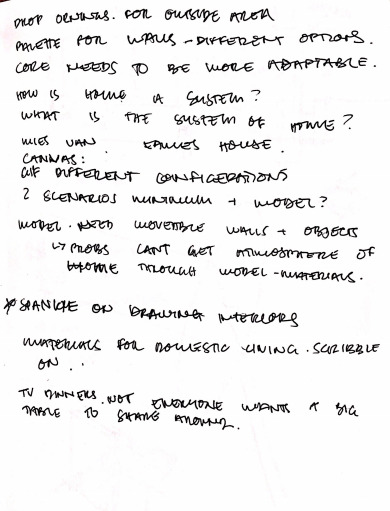 DROP OWNINGS. FOR OUTSIDE AREA
PALETTE FOR WALLS - DIFFERENT OPTIONS.
CORE NEEDS TO BE MORE ADAPTABLE.
HOW IS HOME A SYSTEM?
WHAT IS THE SYSTEM OF HOME?
MIES VAN. EAMES HOUSE.
CANVAS:
GIF DIFFERENT CONFIGERATIONS
2 SCENARIOS MINIMUM + MODEL?
MODEL. NEED MOVEABLE WALLS + OBJECTS
↳ PROBS CANT GET ATMOSPHERE OF
HOME THROUGH MODEL - MATERIALS.
ON DRAWING INTERIORS
MATERIALS FOR DOMESTIC LIVING. SCRIBBLE
ON ..
TV DINNERS. NOT EVERYONE WANTS A BIG
TABLE TO SHARE AROUND.